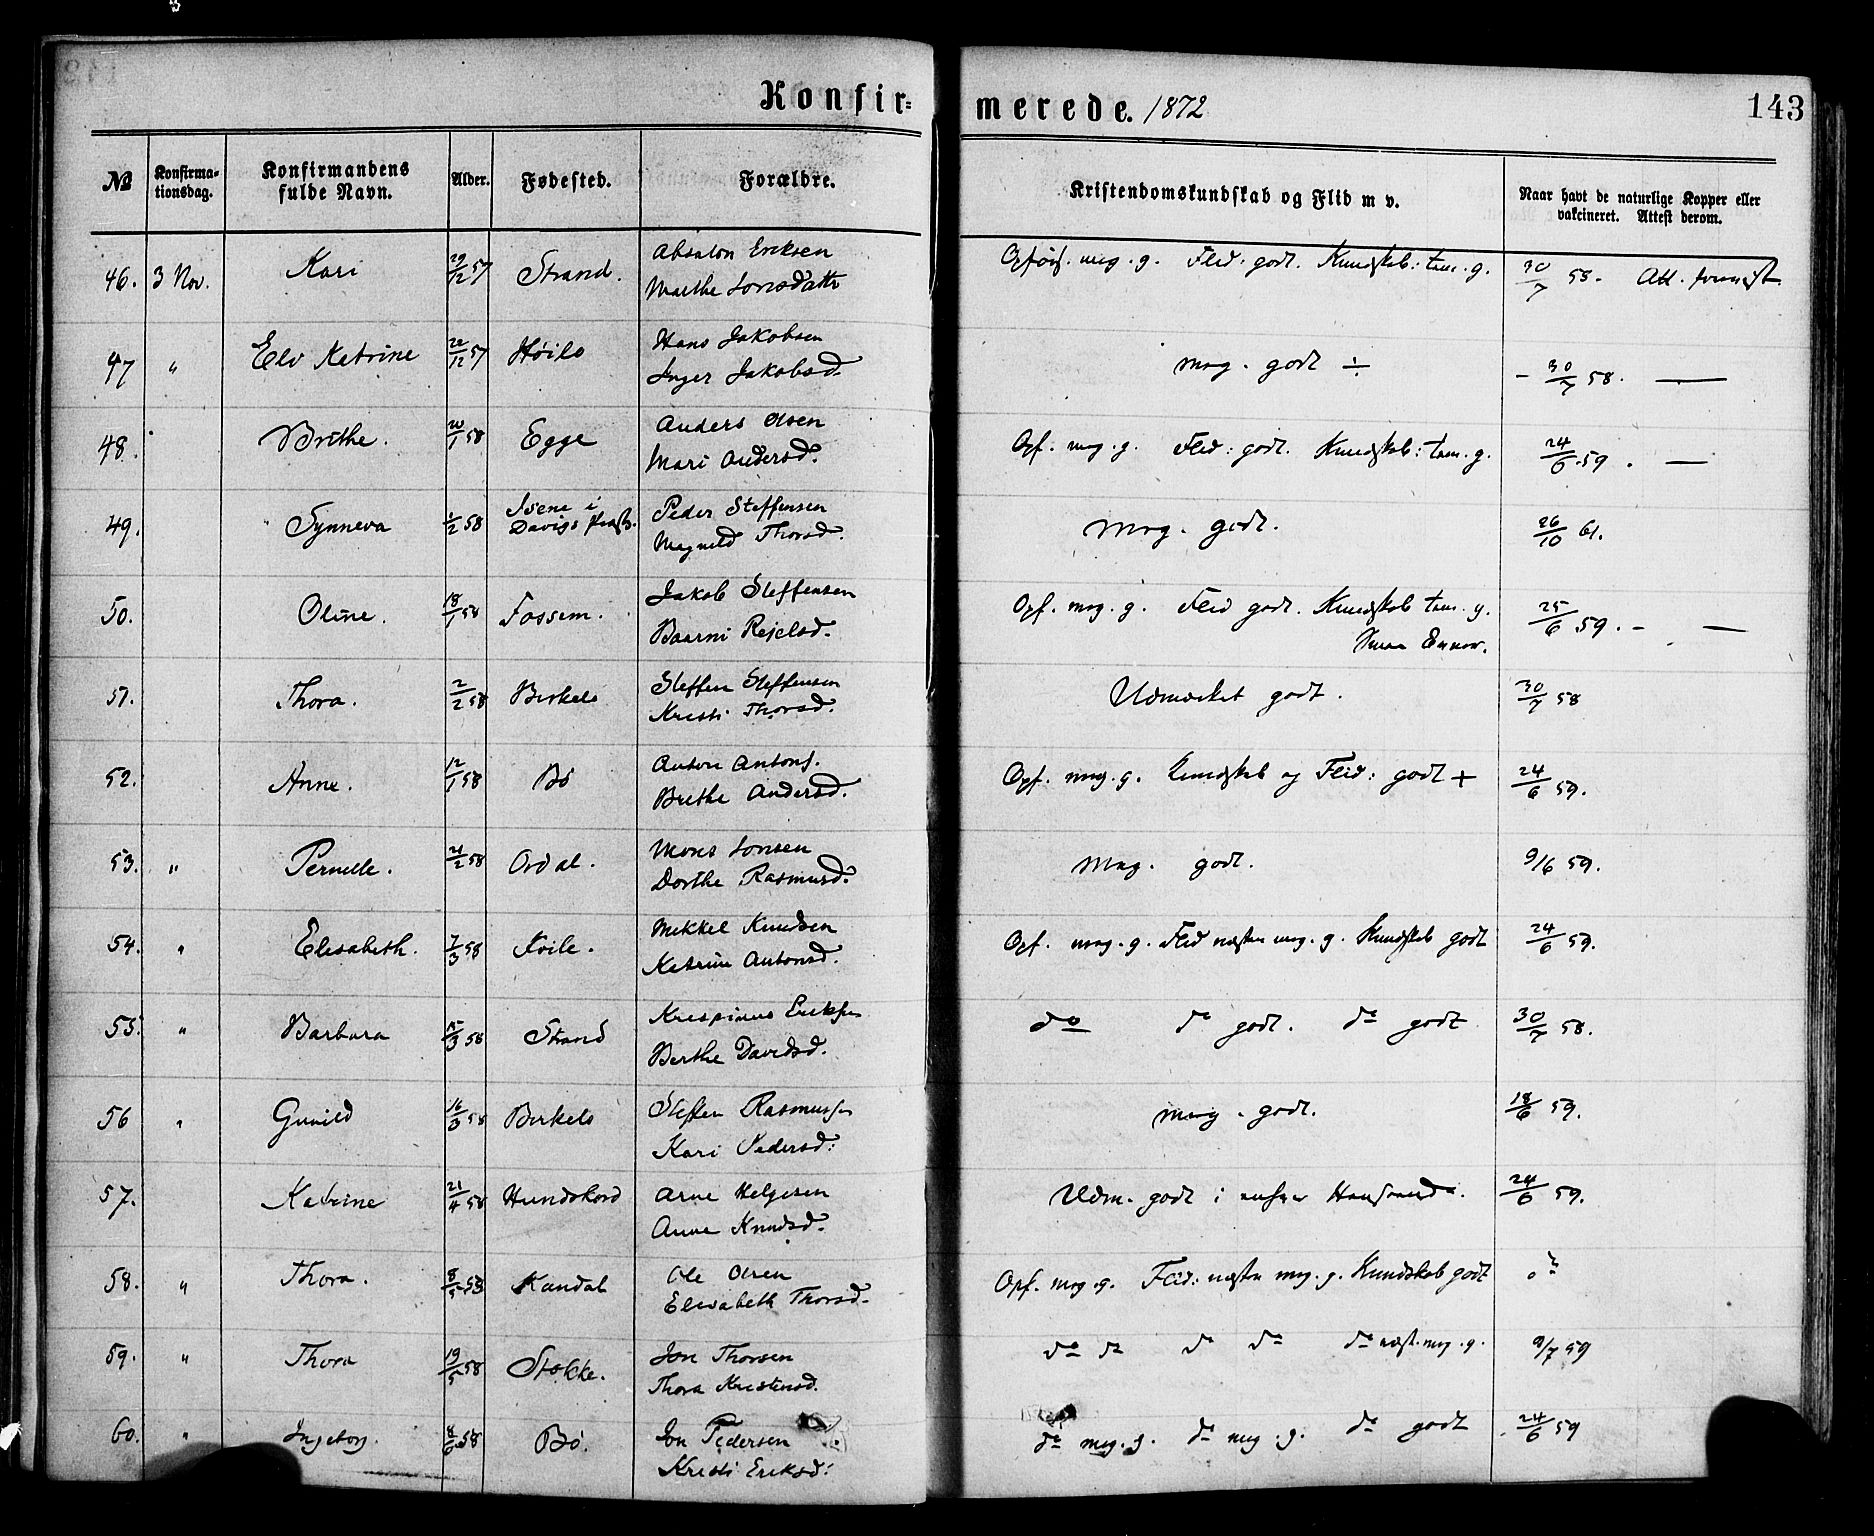 Konfir=
merede. 1872
143
No Konfirma-tionsdag. Konfirmandens fulde Navn. Alder. Fødested. Forældre. Kristendomskundskab og Flid m v. Naar havt de naturlige Kopper eller vakcineret. Attest derom.
46. 3 Nov. Kari 29/12 57 Strand. Absalon Eriksen Opførs. meg. g. Flid: godt. Kundskab: tem. g. 30/7 58. Att.
Marthe Jonsdattr
47 " Elv Katrine 22/12 57 Høilo Hans Jakobsen meg. godt ÷ - 30/7 58. —
Inger Jakobsd.
48. Brithe. 20/1 58 Egge Anders Olsen Opf. meg. g. Flid: godt. Kundskab: tem. g. 24/6 59. —
Mari Andersd.
49. Synneva 1/2 58 Isene i Davigs Peder Steffensen Meg. godt. 26/10 61.
Magnild Thorsd.
50. Oline. 18/1 58 Fossem. Jakob Steffensen Opf. meg. g. Flid godt. Kundskab tem. g. 25/6 59. - —
Baarni Rejelsd.
51. Thora. 2/2 58 Birkelo Steffen Steffensen Udmærket godt. 30/7 58
Kristi Thorsd.
52. Anne. 12/1 58 Bö Anton Antons. Opf. meg. g. Kundskab og Flid: godt + 24/6 59.
Brithe Andersd.
53. " Pernille. 21/2 58 Ordal. Mons Jonsen Meg. godt. 9/6 59.
Dorthe Rasmusd.
54. " Elisabeth. 7/3 58 Mikkel Knudsen Opf. meg. g. Flid næsten meg. g. Kundskab godt 24/6 59.
Katrine Antonsd.
55. " Barbara 15/3 58 Strand Krispinus Eriksen do do godt. do godt 30/7 58.
Berthe Davidsd.
56 " Gunild 16/3 58 Birkelo Steffen Rasmussen meg. godt. 18/6 59.
Kari Pedersd:
57. Katrine 21/4 58 Hundskord Arne Helgesen Udm. godt i 24/6 59.
Anne Knudsd.
58. " Thora. 8/5 58 Kandal Ole Olsen Opf. meg. g. Flid: næsten meg. g. Kundskab godt do
Elisabeth Thorsd.
59. " Thora 19/5 58 Støkke. Jon Thorsen do do do do do næst. meg. g. 9/7 59
Thora Kristensd.
60. " Ingeborg. 8/6 58 Bö. Jon Pedersen do meg. g. do meg. g. do godt 24/6 59
Kristi Eriksd: